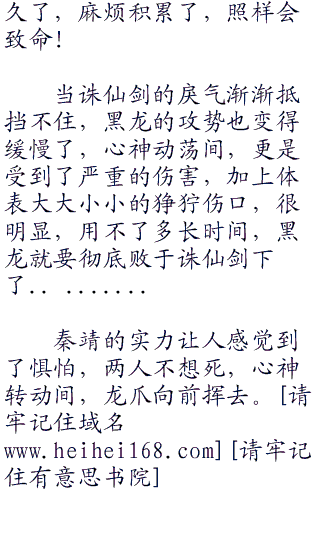 久了，麻烦积累了，照样会
致命！
当诛仙剑的戾气渐渐抵
挡不住，黑龙的攻势也变得
缓慢了，心神动荡间，更是
受到了严重的伤害，加上体
表大大小小的狰狞伤口，很
明显，用不了多长时间，黑
龙就要彻底败于诛仙剑下
了.. .......
秦靖的实力让人感觉到
了惧怕，两人不想死，心神
转动间，龙爪向前挥去。[请
牢记住域名
www.heihei168.com][请牢记
住有意思书院]